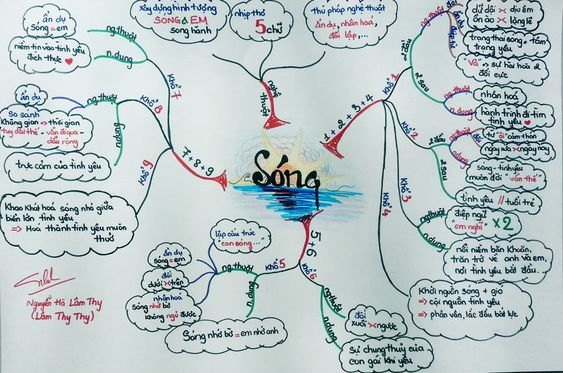 Sóng
nghệ
thuật
xây dựng hình tượng
SÓNG & EM
song hành
nhịp thơ
5 chữ
thủ pháp nghệ thuật
ẩn dụ, nhân hoá,
đối lập,...
1+2+3+4
Khổ 1
2 câu
ng.thuật
đối lập
dữ dội >< dịu êm
ồn ào >< lặng lẽ
n.dung
trạng thái sóng - tâm
trạng yêu
"Và" → sự hài hoà 2
đối cực
2 sau
ng.thuật
nhân hoá
n.dung
hành trình đi tìm
tình yêu
Khổ 2
2 đầu
ngày xưa >< ngày nay
sóng - tình yêu
muôn đời "vẫn thế"
2 sau
tình yêu // tuổi trẻ
Khổ 3
ng.thuật
điệp ngữ
em nghĩ" x2
n.dung
nỗi niềm băn khoăn,
trăn trở về anh và em,
nơi tình yêu bắt đầu.
Khổ 4
Khởi nguồn sóng + gió
⇒ cội nguồn tình yêu
→ phân vân, lắc đầu bất lực
5+6
Khổ 5
ng.thuật
lặp cấu trúc
"con sóng..."
ẩn dụ
sóng = em
đối
dưới >< trên
nhân hoá
sóng nhớ bờ
không ngủ được
n.dung
Sóng nhớ bờ = em nhớ anh
Khổ 6
ng.thuật
đối
xuôi >< ngược
n.dung
sự chung thuỷ của
con gái khi yêu
7+8+9
Khổ 7
ng.thuật
ẩn dụ
sóng = em
n.dung
niềm tin vào tình yêu
đích thực
Khổ 8
ng.thuật
ẩn dụ
so sánh
không gian → thời gian
"tuy dài thế - vẫn đi qua -
dẫu rộng
n.dung
trực cảm của tình yêu
Khổ 9
Khao khát hoá sóng nhỏ giữa
biển lớn tình yêu
⇒ Hoá thành tình yêu muôn
thuở
Nguyễn Hà Lâm Thy
(Lâm Thy Thy)